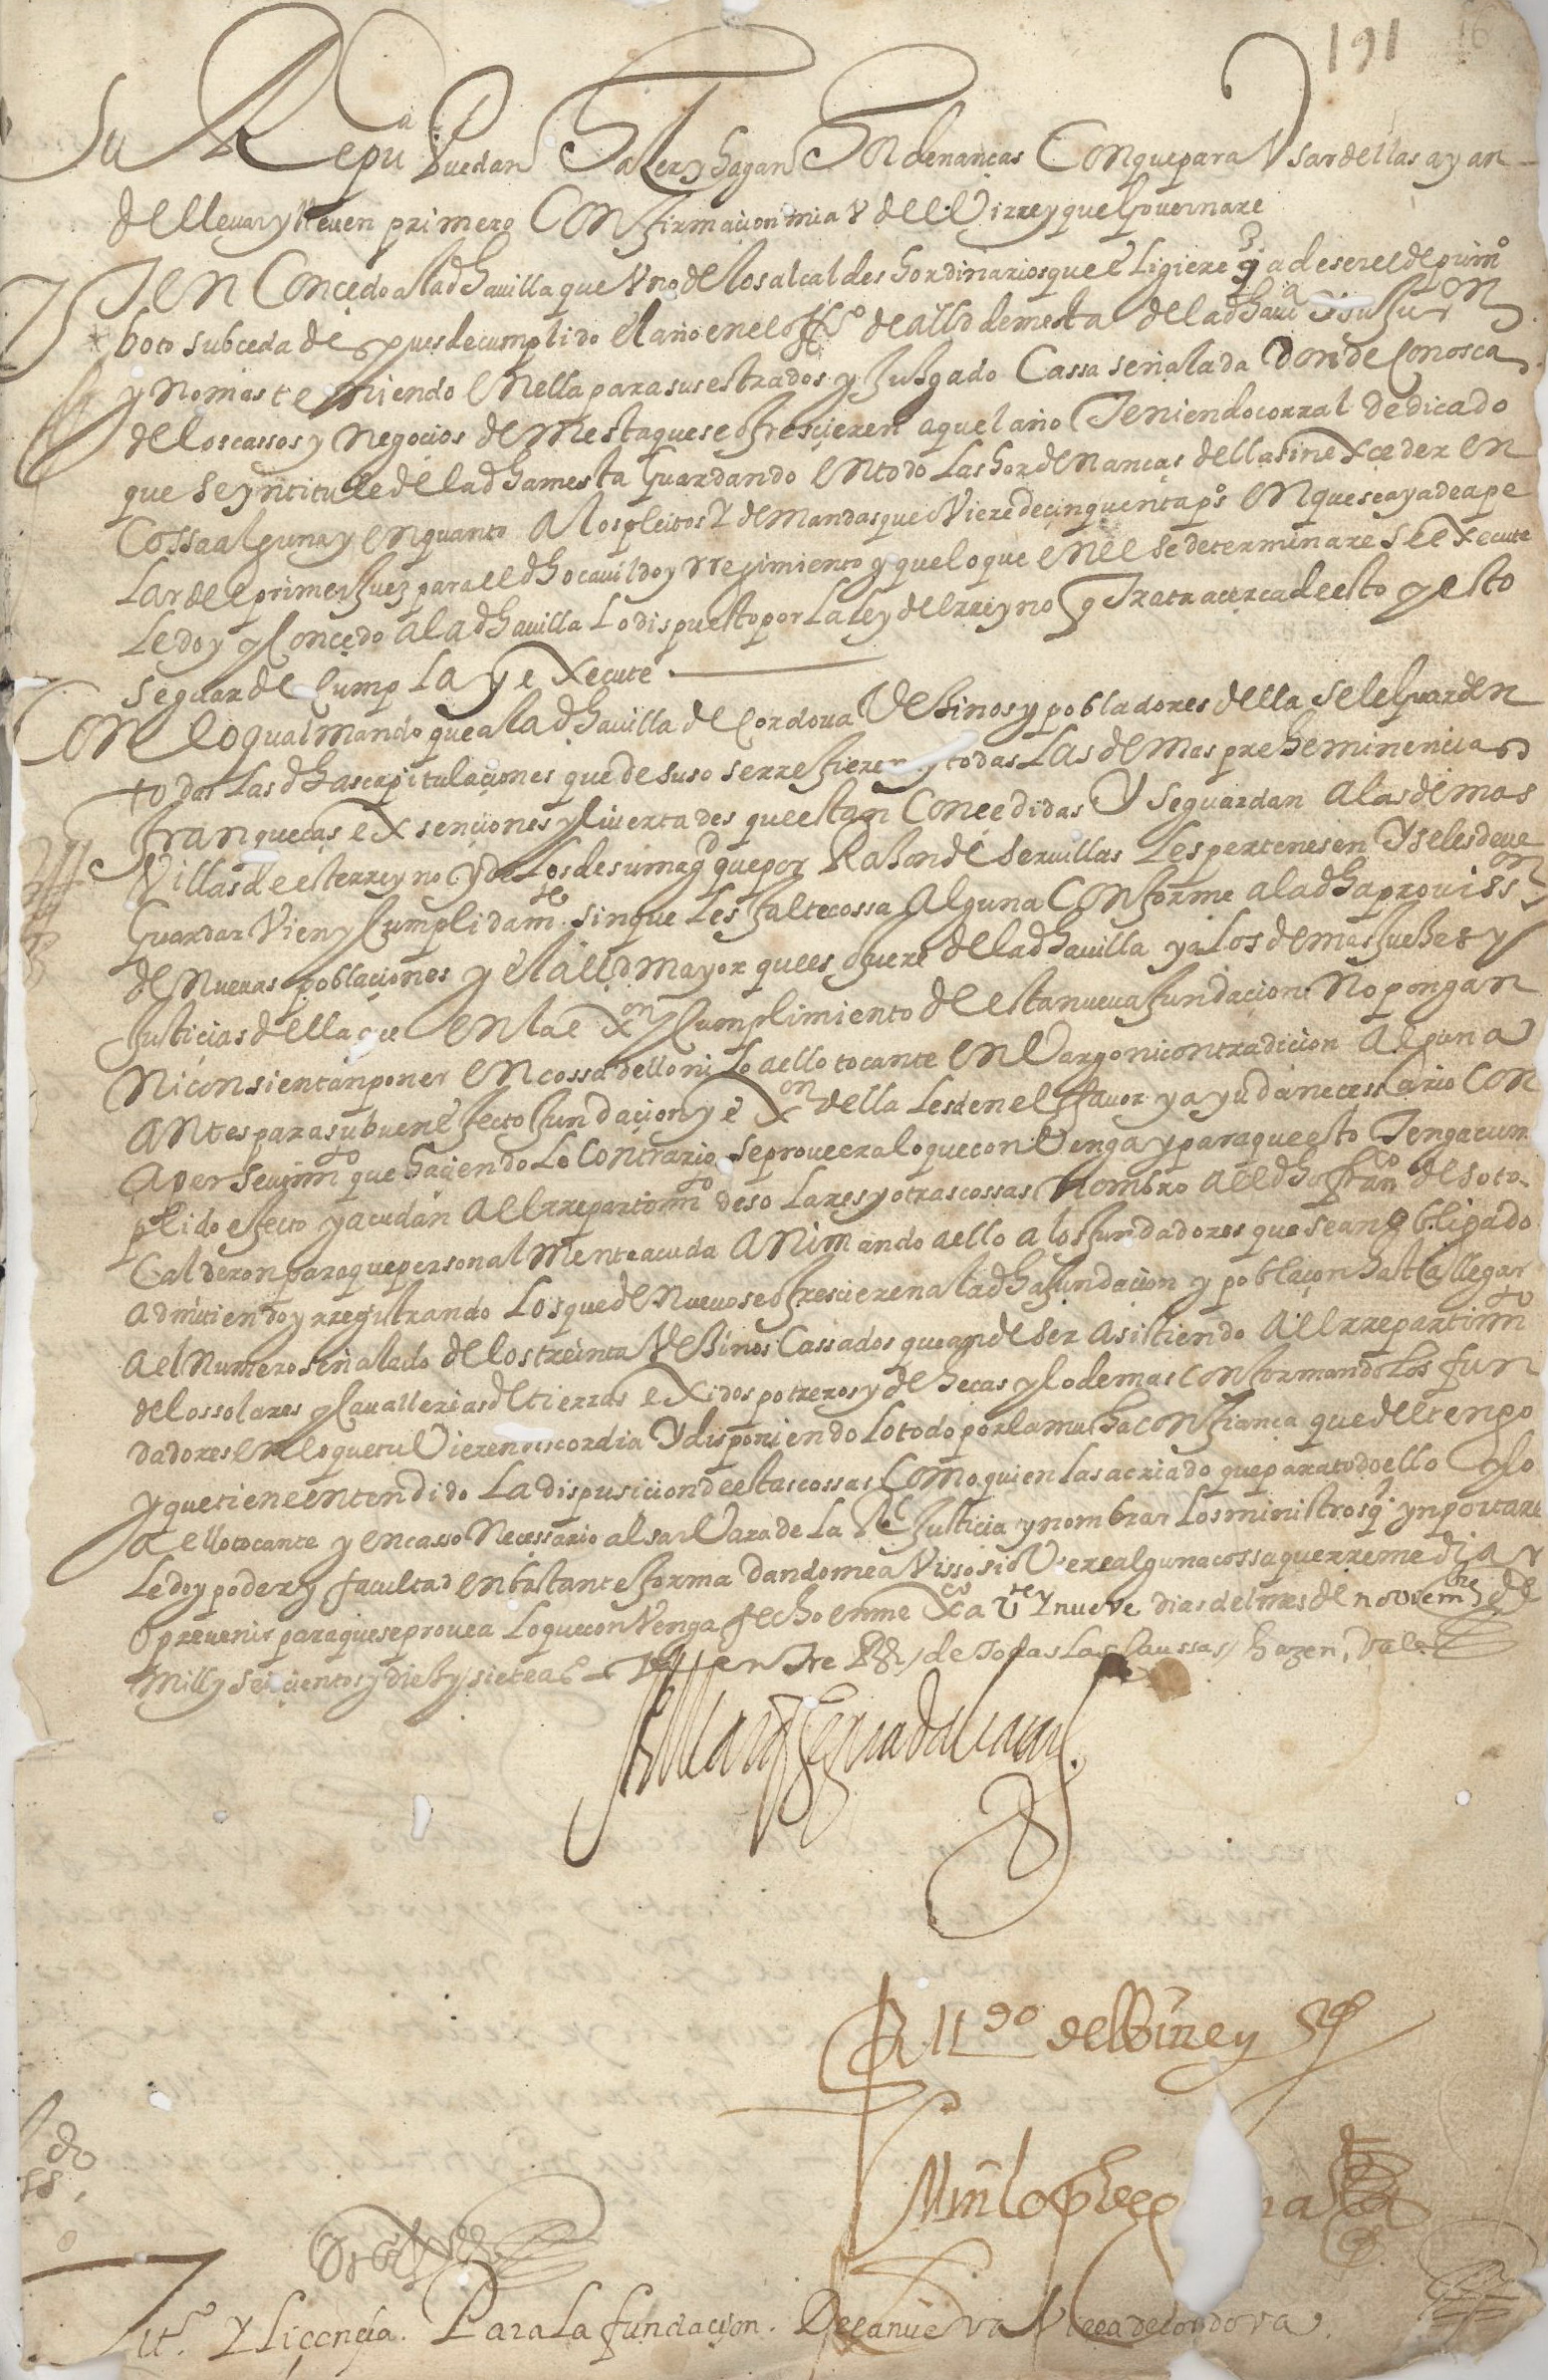 191
16
Su Repuca Puedan Haser y hagan Hordenanças Con que para Vsar dellas ayan
de lleuar y lleuen primero Confirmaçion mia V del Virrey que Gouernare
Yten Concedo a la dha uilla que Vno de los alcaldes hordinarios que eligiere q a de ser el de primo
boto subceda despues de cumplido el año en el offo de alld de mesta de la dha ua Y su Juron
y no mas teniendo en ella para sus estrados y Juzgado Cassa señalada donde Conosca
de los cassos y negocios de Mesta que se ofresçieren aquel año Teniendo corral dedicado
que se yntitule de la dha mesta Guardando en todo Las hordenanças della sin exceder en
Cossa alguna y en quanto a Los pleitos Y demandas que uViere de çinquenta ps en que se aya de ape
Lar del primer Juez para el dho cauildo y rregimiento y que lo que en el se determinare se execute
Le doy y Concedo a la dha uilla Lo dispuesto por La Ley del rreyno q Trata acerca de esto y esto
se guarde Cumpla y execute
Con lo qual mando que a la dha uilla de Cordoua Vesinos y pobladores della se le Guarden
todas Las dhas capitulaçiones que de suso se rrefieren y todas Las demas preheminencias
franqueças exsençiones y liuertades que estan Concedidas Y se guardan a las demas
Villas de este rreyno y de Los de su magd que por Rason de ser uillas Les pertenesen Y se les deue
Guardar Vien y Cumplidamte sin que Les falte cossa Alguna Conforme a la dha prouisson
de Nueuas poblaçiones y el alld mayor que es o fuere de la dha uilla y a Los demas Juezes y
Justicias della que en la exon y Cumplimiento de esta nueua fundaçion No pongan
Ni consientan poner en cossa dello ni Lo a ello tocante enVargo ni contradicion Alguna
Antes para su buen efecto fundaçion y exon della Les den el ffauor y ayuda necessario Con
Aperseuimto que haçiendo Lo Contrario se proueera lo que conVenga y para que esto Tenga cum
plido efecto y acudan al rrepartimto de solares y otras cossas Nombro al dho franco de soto
Calderon para que personalmente acuda Animando a ello a los fundadores que sean obligado
admitiendo y rregistrando Los que de Nueuo se ofrescieren a la dha fundaçion y poblaçon hasta llegar
a el Numero señalado de los treinta Vesinos Cassados que an de ser asistiendo al rrepartimto
de los solares y Cauallerias de tierras exidos potreros y dehecas y lo demas conformando Los fun
dadores en lo que tuVieren discordia Y disponiendo Lo todo por la mucha confiança que del tengo
y que tiene entendido La dispusicion de estas cossas Como quien Las a criado que para todo ello y lo
a ello tocante y en casso Necessario alsar Vara de La Rl Justicia y nombrar Los ministros q ynportare
Le doy poder y facultad en bastante forma dandome aVisso si oViere alguna cossa que rremediar
o preuenir para que se prouea Lo que conVenga fecho en mexco a Vte Y nueve dias del mes de noviembre de
mill y seiscientos y diez y siete as entre Rs / de Todas Las Caussas / hazen, Vale
El Marqs de guadalcaçar
Por mdo del Birrey
Min Lopez
Titº. Y Liçencia. Para La fundacion. De la nueva Villa de Cordova.